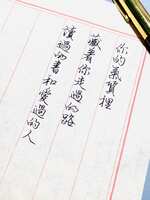 你的氣質裡
藏着你走過的路
讀過的書和愛過的人